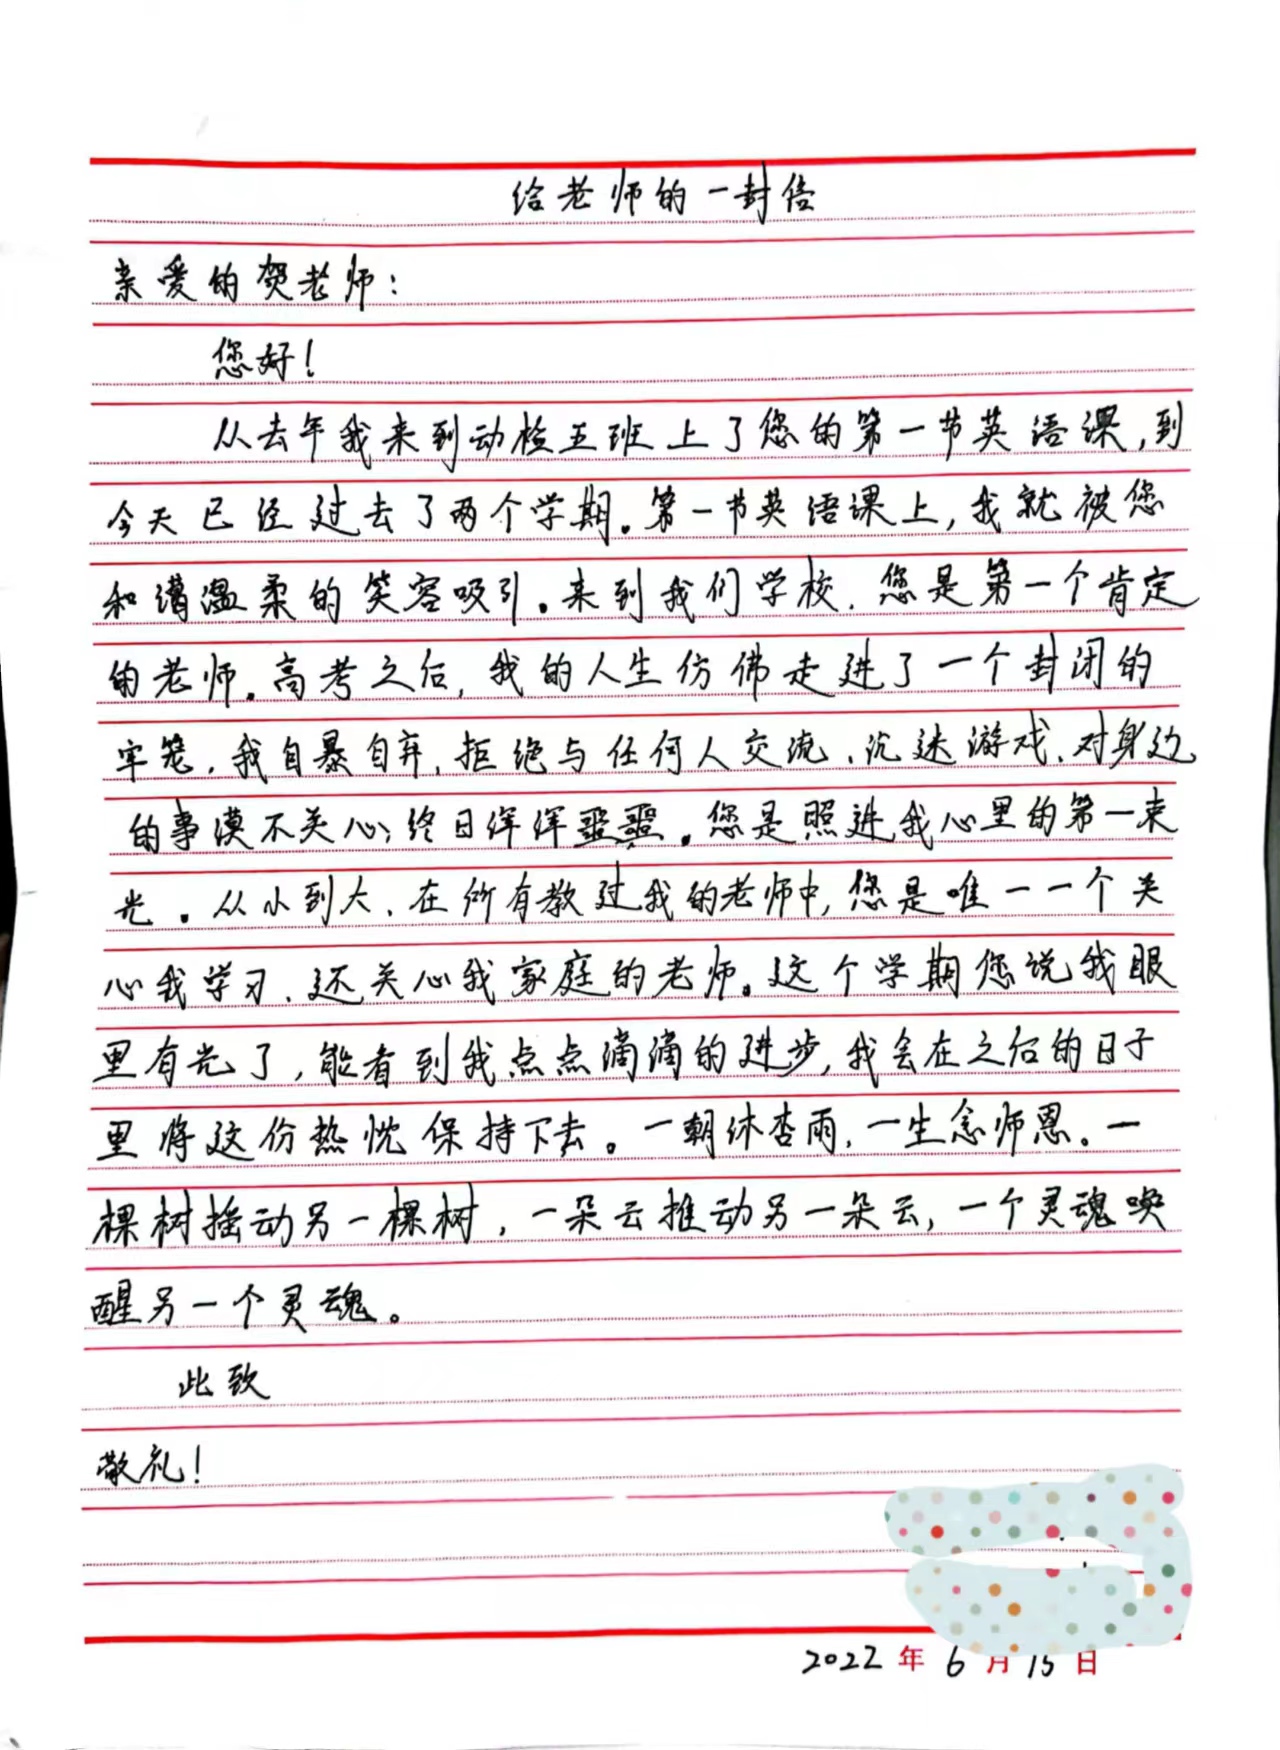 给老师的一封信
亲爱的贺老师：
您好！
从去年我来到动检五班上了您的第一节英语课，到
今天已经过去了两个学期。第一节英语课上，我就被您
和蔼温柔的笑容吸引。来到我们学校，您是第一个肯定
的老师。高考之后，我的人生仿佛走进了一个封闭的
牢笼，我自暴自弃，拒绝与任何人交流、沉迷游戏、对身边
的事漠不关心，终日浑浑噩噩。您是照进我心里的第一束
光。从小到大、在所有教过我的老师中，您是唯一一个关
心我学习、还关心我家庭的老师。这个学期您说我眼
里有光了，能看到我点点滴滴的进步，我会在之后的日子
里将这份热忱保持下去。一朝沐杏雨，一生念师恩。一
棵树摇动另一棵树，一朵云推动另一朵云，一个灵魂唤
醒另一个灵魂。
此致
敬礼！
2022年6月15日